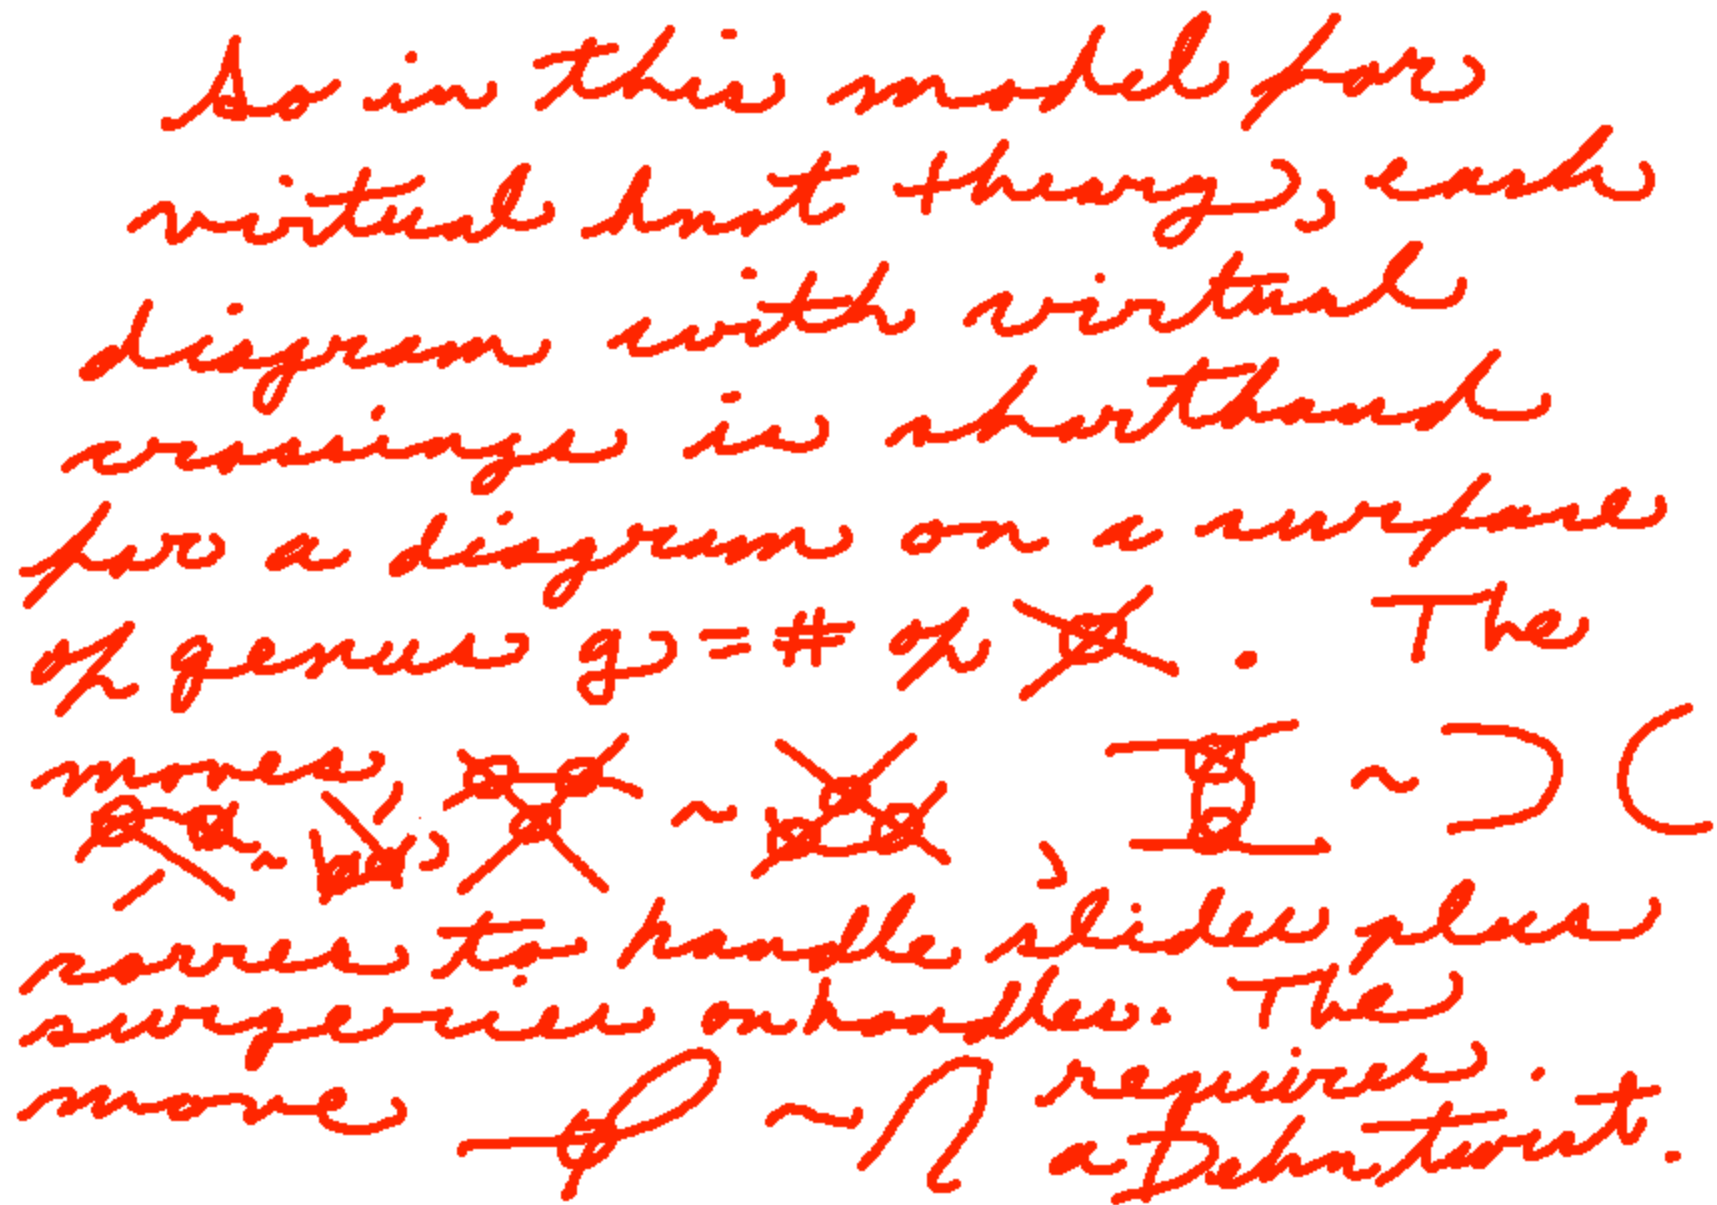 So in this model for
virtual knot theory, each
diagram with virtual
crossings is shorthand
for a diagram on a surface
of genus g = # of . The
moves, ~ , ~
~ ,
to handle slides plus
surgeries on handles. The
move ~ requires
a Dehn twist.